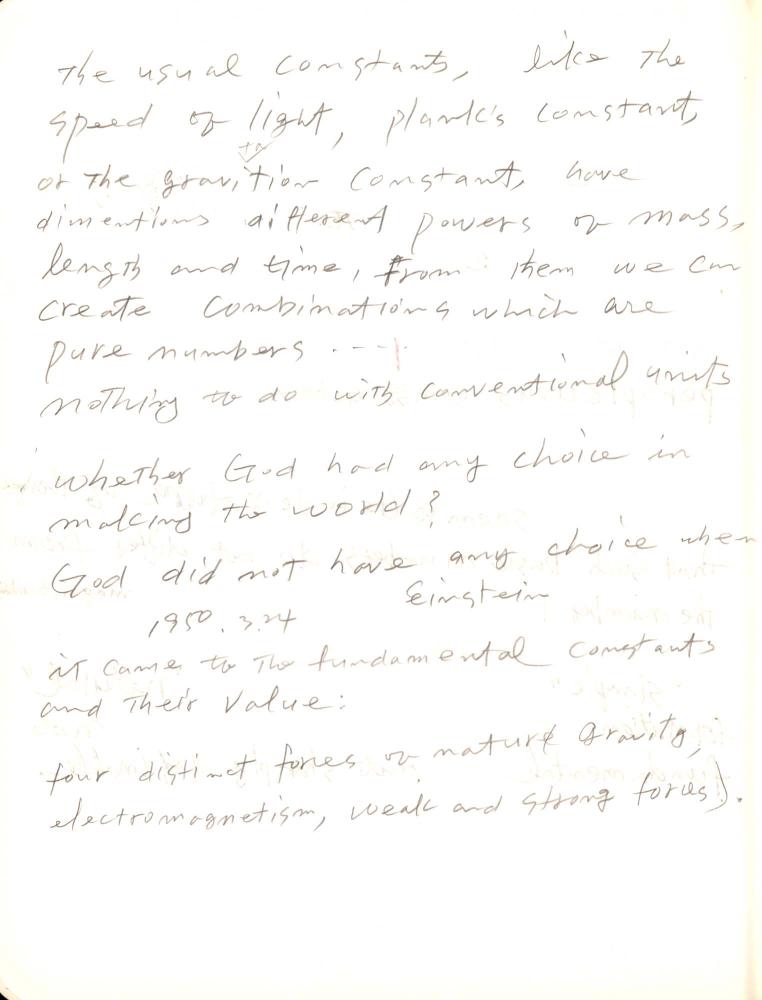 The usual constants, like The
speed of light, plank's constant,
ta
or The gravition constant, have
dimentions different powers of mass,
length and time, From them we can
create combinations which are
pure numbers ----
nothing to do with conventional units
whether God had any choice in
making the world?
God did not have any choice when
Einstein
1950.3.24
it came to The fundamental constants
and Their value:
four distinct forces of nature Gravity,
electromagnetism, weak and strong forces).